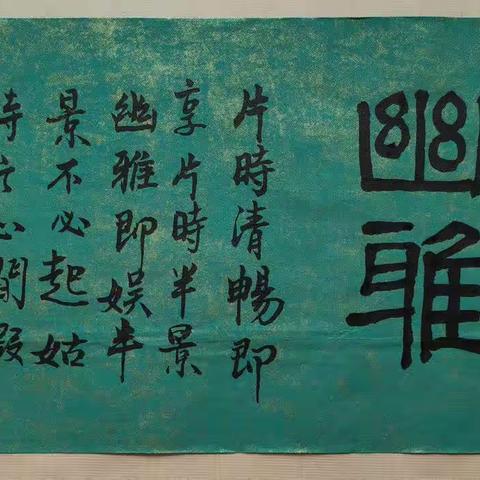 幽雅
片時清暢即
享片時半景
幽雅即娛半
景不必起姑
待之心